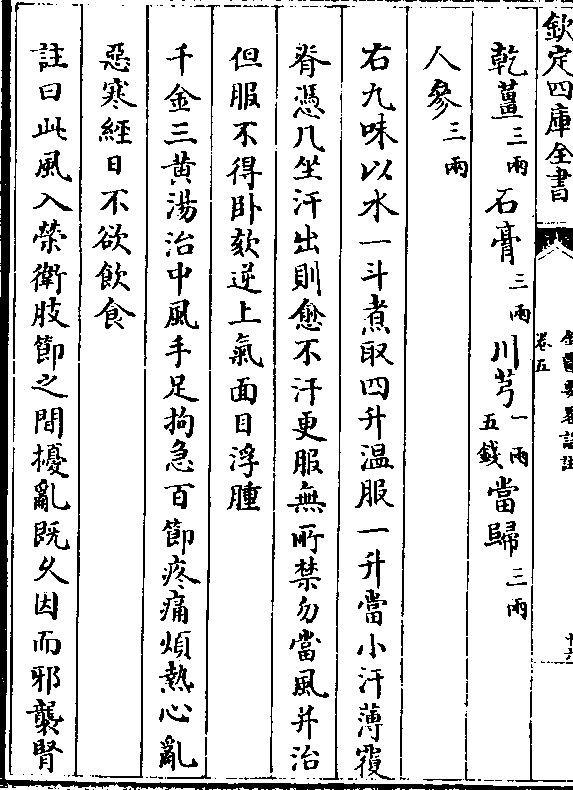 欽定四庫全書
金匱要略論註
卷五
十六
乾薑三兩 石膏三兩 川芎一兩五錢 當歸三兩
人參三兩
右九味以水一斗煮取四升温服一升當小汗薄覆
脊憑几坐汗出則愈不汗更服無所禁勿當風并治
但服不得卧欬逆上氣面目浮腫
千金三黄湯治中風手足拘急百節疼痛煩熱心亂
惡寒經日不欲飲食
註曰此風入榮衛肢節之間擾亂既久因而邪襲腎